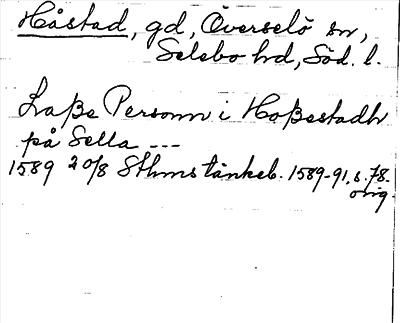 Håstad, gd, Överselö sn,
Selebo hd, Söd. l.
Laße Personn i Hoßestadh
på Sella ---
1589 20/8 Sthms tänkeb. 1589-91, s. 78.
orig.